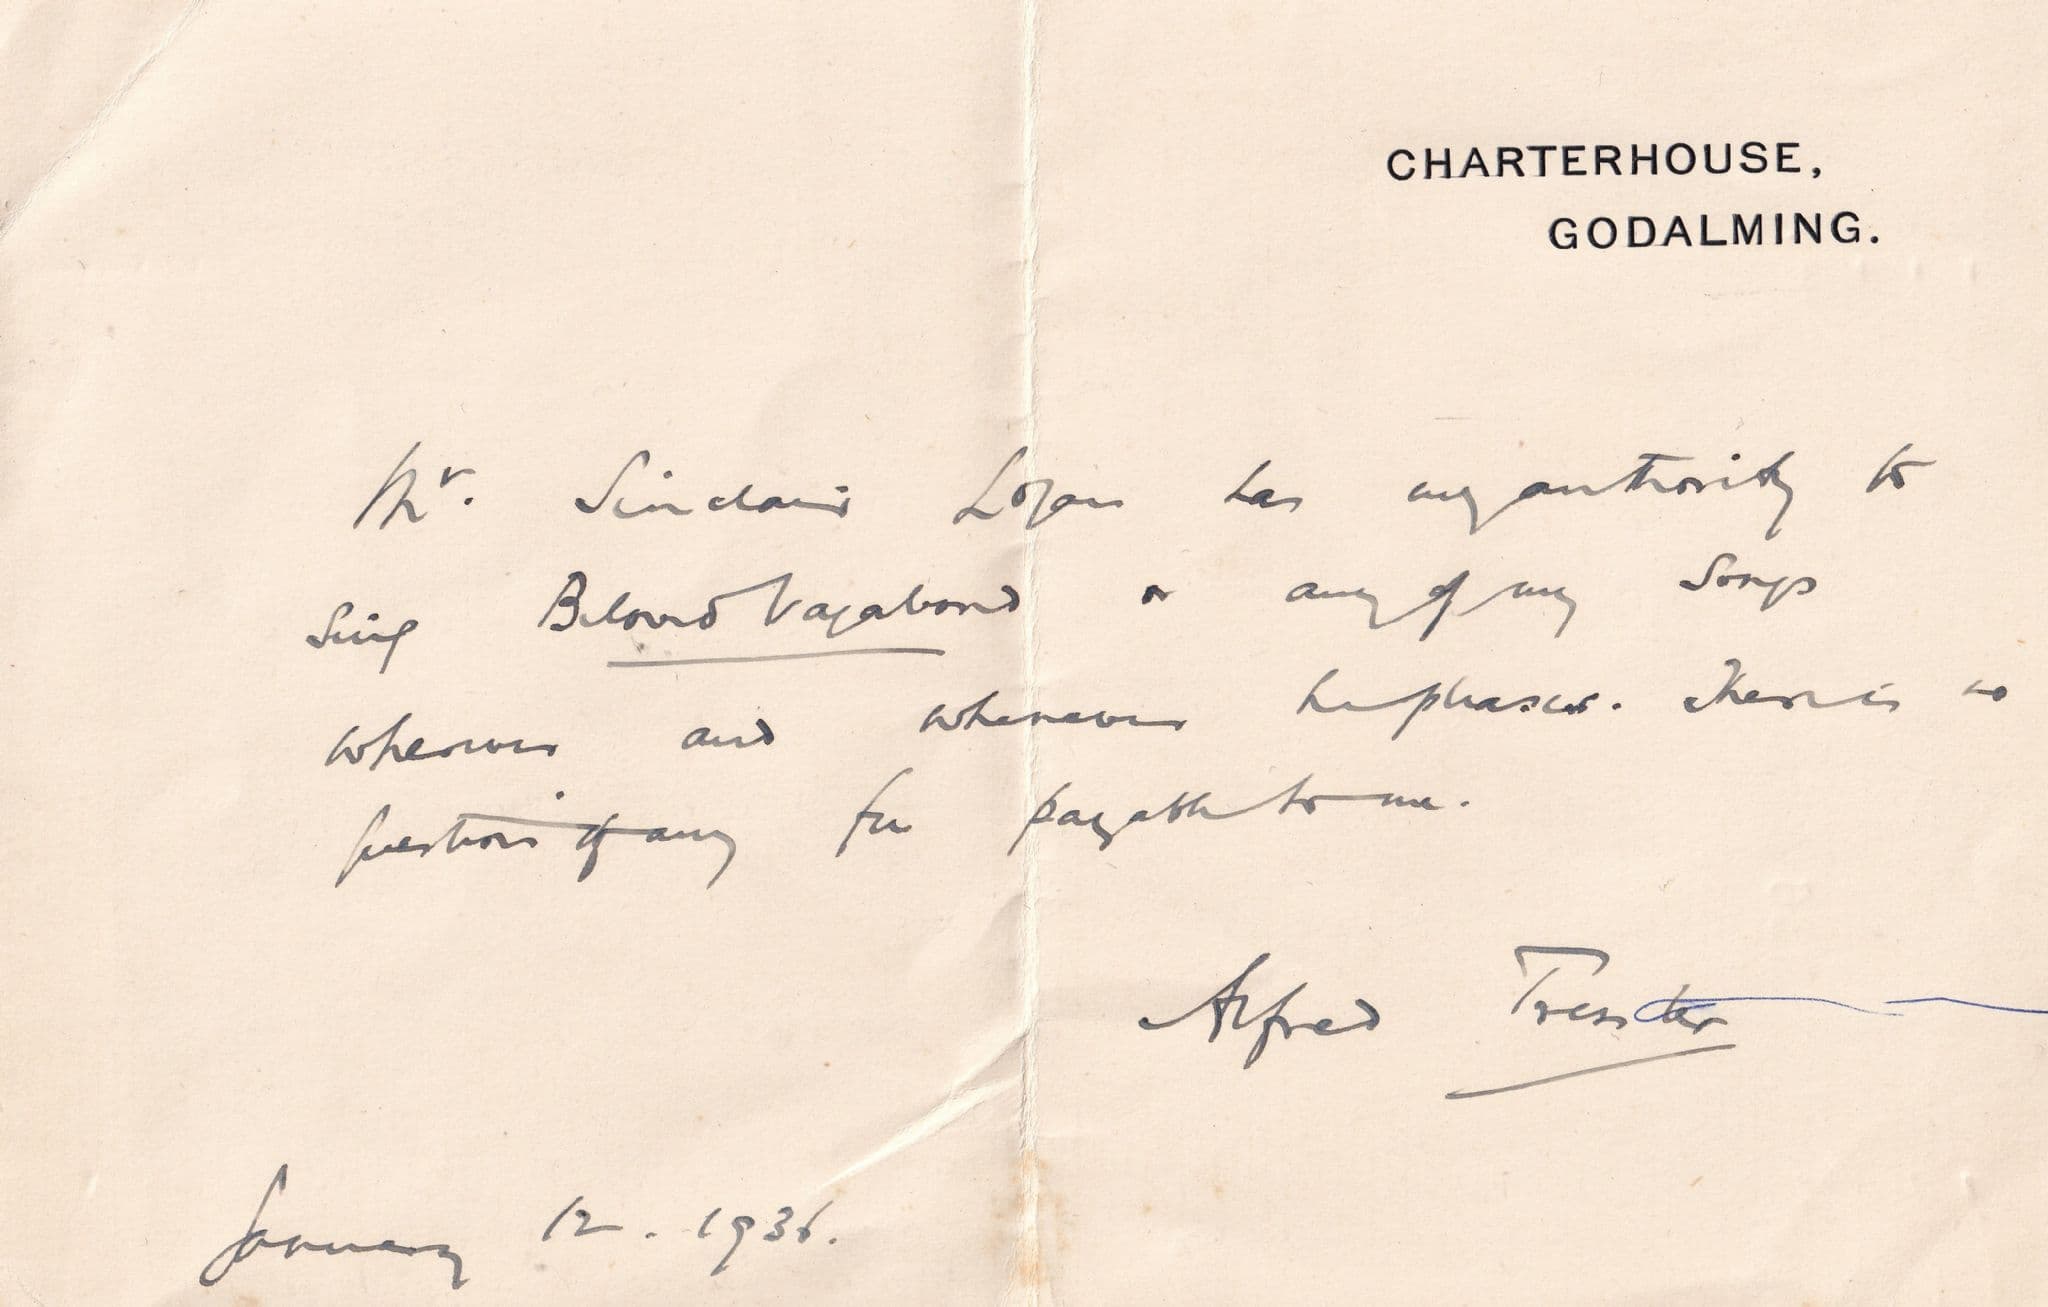 CHARTERHOUSE,
GODALMING.
Mr. Sinclair Logan has my authority to
sing Beloved Vagabond or any of my songs
wherever and whenever he pleases. There is no
question of any fee payable to me.
Alfred Tresster
January 12. 1936.